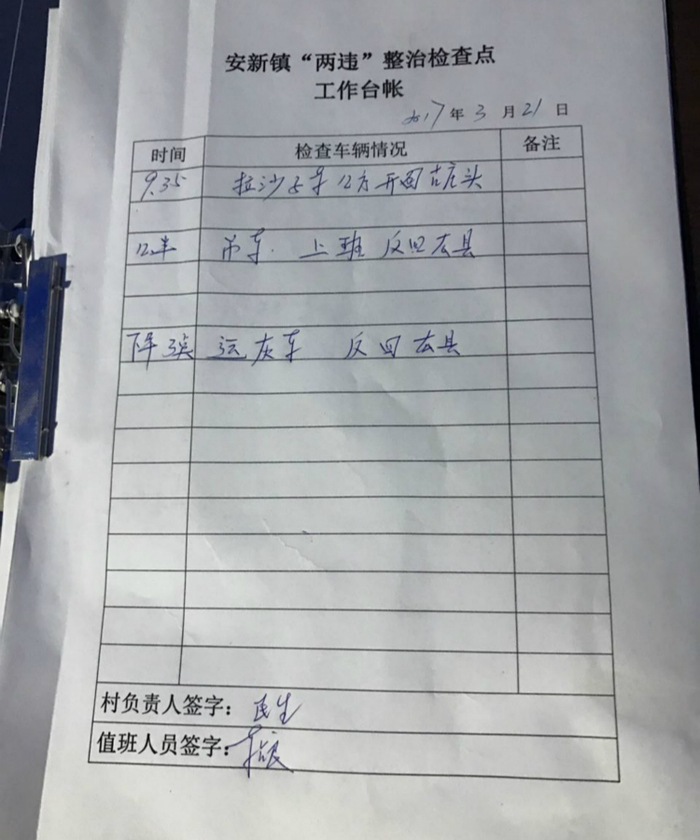 安新镇“两违”整治检查点
工作台帐
2017年3月21日
时间 检查车辆情况 备注
9.35 拉沙子车12方开回 头
12.半 吊车. 上班 反回去县
3点 运灰车 反回去县
村负责人签字：民生
值班人员签字：